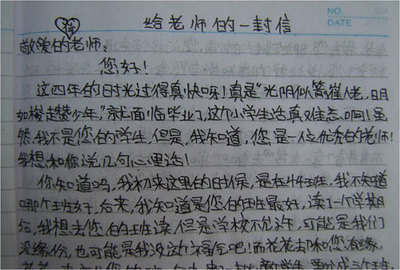 给老师的一封信
NO.
DATE
敬爱的老师:
您好!
这四年的时光过得真快呀!真是“光阴似箭催人老,日月
如梭趱少年”就面临毕业了,这个小学生活真难忘啊!虽
然,我不是您的学生,但是,我知道,您是一位优秀的老师!
我想和你说几句心里话!
你知道吗,我初来这里的时候,是在4年班,我不知道
哪个班好,后来,我知道是您的班最好,读了一个学期
后,我想去您的班读,但是学校不允许,可能是我们
没缘份,也可能是我没这个福气吧!而